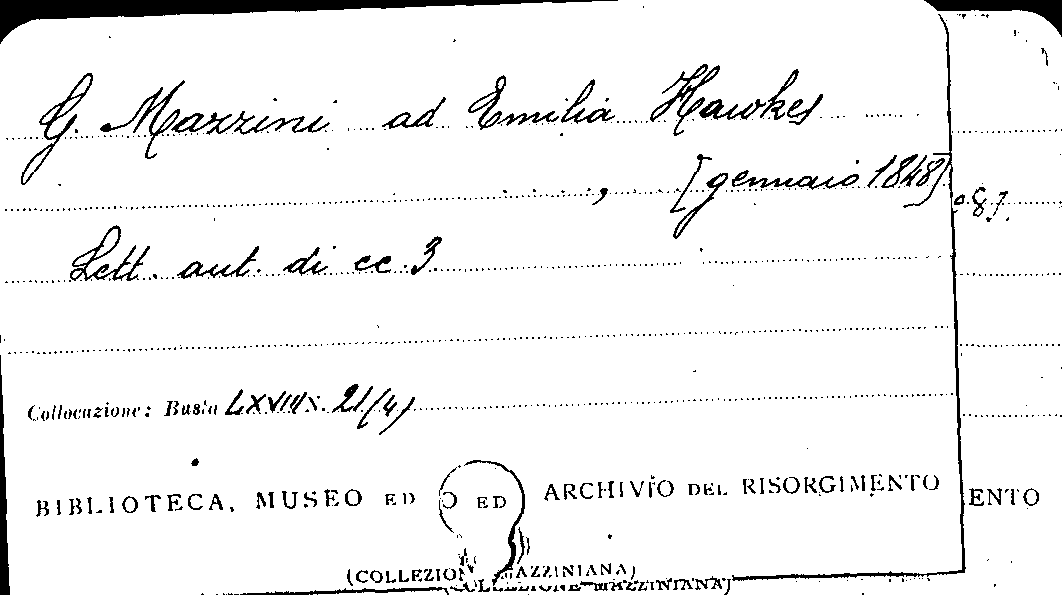 G. Mazzini ad Emilia Hawkes
. . . . , [gennaio 1848]
Lett. aut. di cc. 3
Collocazione: Busta LXVIII N. 21(4)
BIBLIOTECA, MUSEO ED ARCHIVIO DEL RISORGIMENTO
(COLLEZIONE MAZZINIANA)
8].
O ED
ENTO
(COLLEZIONE MAZZINIANA)